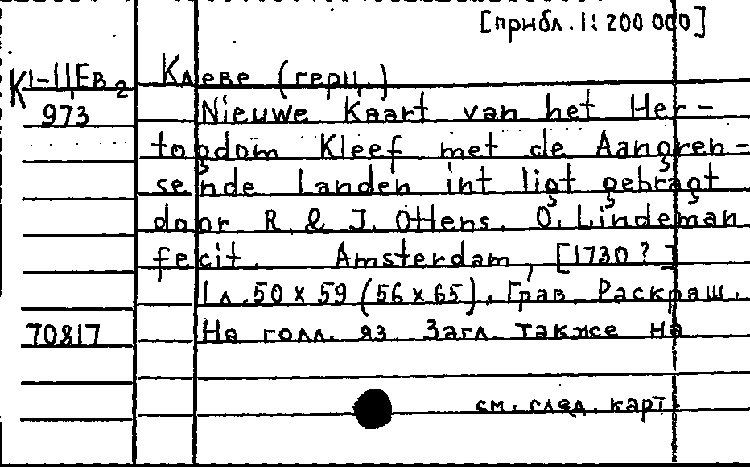 [прибл. 1: 200 000]
К1-IIЕв2 Клеве (герц.)
973 Nieuwe Kaart van het Her-
togdom Kleef met de Aangren-
sende Landen int ligt gebragt
door R. & J. Ottens. O. Lindeman
fecit. Amsterdam, [1730?]
1 л. 50 x 59 (56 x 65), Грав. Раскраш.
70817 На голл. яз. Загл. также на
см. след. карт.